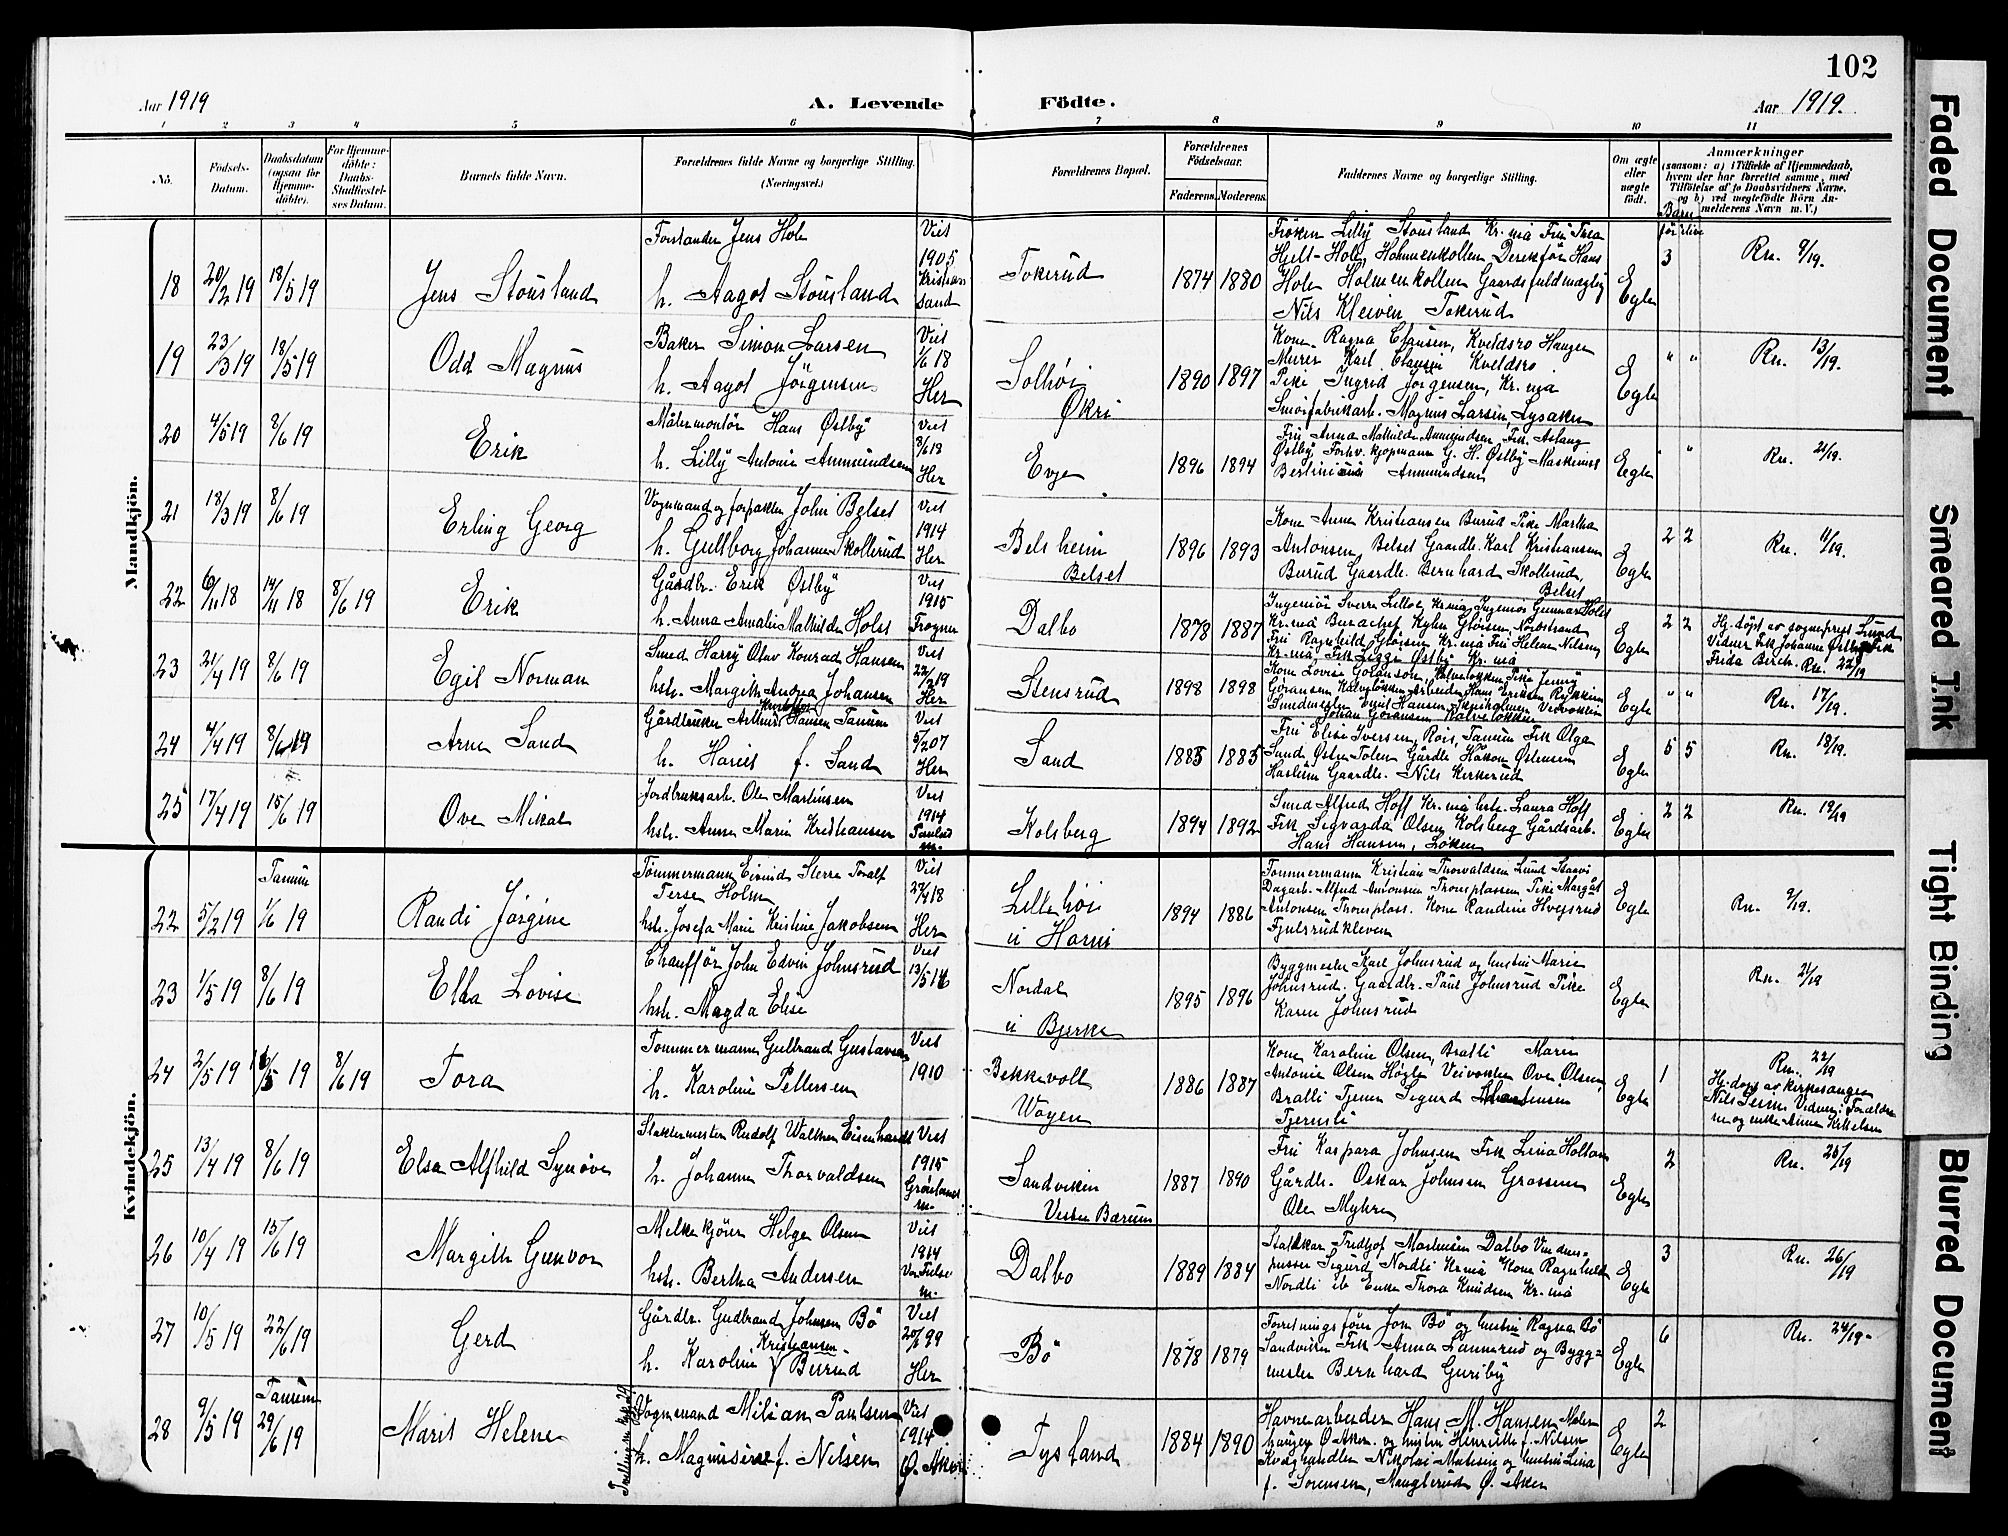 102
Aar 1919
A. Levende
Födte.
Aar 1919.
1 2 3 4 5 6 7 8 9 10 11
No.
Födsels-Datum.
Daabsdatum (ogsaa for Hjemme-döbte).
For Hjemme-döbte: Daabs-Stadfæstelses Datum.
Barnets fulde Navn.
Forældrenes fulde Navne og borgerlige Stilling. (Næringsvei.)
Forældrenes Bopæl.
Forældrenes Födselsaar.
Faderens. Moderens.
Faddernes Navne og borgerlige Stilling.
Om ægte eller uægte födt.
Anmærkninger
(saasom: a) i Tilfælde af Hjemmedaab, hvem der har forrettet samme, med Tilföielse af to Daabsvidners Navne, og b) ved uægtefödte Börn Anmelderens Navn m. V.)
Mandkjön.
18 20/2 19 18/5 19 Jens Stousland
Forstander Jens Hole
h. Aagot Stousland
Viet 1905 Kristiansand
Tokerud 1874 1880
Frøken Lilly Stousland Kr.nia Fru Thea
Hjelt-Hole, Holmenkollen Direktør Hans
Hole Holmenkollen Gaardsfuldmægtig
Nils Kleiven Tokerud
Egte 3 Rn. 9/19.
19 23/3 19 18/5 19 Odd Magnus
Baker Simon Larsen
h. Aagot Jörgensen
Viet 1/6 18 Her
Solhöi Økri 1890 1897
Kone Ragna Clausen, Kveldsro Haugen
Murer Karl Clausen Kveldsro
Pike Ingrid Jörgensen, Kr.nia
Smörfabrikarb. Magnus Larsen, Lysaker
Egte " " Rn. 13/19.
20 4/5 19 8/6 19 Erik
Målermontör Hans Østby
h. Lilly Antonie Ammundsen
Viet 8/6 18 Her
Evje 1896 1894
Fru Anna Mathilde Ammundsen, Frk. Aslaug
Østby, Forhv. kjøpmann G. H. Østby Maskinist
Ammundsen
Egte " " Rn. 21/19.
21 18/3 19 8/6 19 Erling Georg
Vognmand og forpakter John Belset
h. Gullborg Johanne Skollerud
Viet 1914 Her
Belsheim Belset 1896 1893
Kone Anne Kristiansen Burud Pike Martha
Antonsen, Belset Gaardbr. Karl Kristiansen
Burud Gaardbr. Bernhard Skollerud,
Belset
Egte 2 2 Rn. 11/19.
22 6/11 18 14/11 18 8/6 19 Erik
Gårdbr. Erik Østby
h. Anna Amalie Mathilde Holst
Viet 1915 Frogner
Dalbo 1878 1887
Ingeniör Sverre Lilloe Kr.nia Ingeniör Gunnar Holst
Kr.nia Nordstrand
Fru Ragnhild Gløersen Kr.nia Fru Helene Nilsen
Kr.nia Frk. Lizzi Østby Kr.nia
Egte 2 2
Hj. døpt av sogneprest Lund
Vidner Frk Johanne Østby Frk
Frida Berch. Rn. 22/19
23 21/4 19 8/6 19 Egil Norman
Smed Harry Olav Konrad Hansen
hstr. Margith Andrea Johansen
Viet 22/2 19 Her
Stensrud 1898 1898
Kone Lovise Goransson, Kalveløkken Pike Jenny
Goransen Kalveløkken Arbeider Hans Eriksen Rykkinn
Smedmester Emil Hansen,
Johan Goransen Kalveløkken
Egte " " Rn. 17/19.
24 4/4 19 8/6 19 Arne Sand
Gårdbruker Arthur Kristoffer Hansen Tanum
h. Hariet f. Sand
Viet 5/2 07 Her
Sand 1883 1885
Fru Elise Iversen, Röis, Tanum Frk Olga
Sand Østre Tolen Gårdbr. Håkon Østensen
Haslum Gaardbr. Nils Kirkerud
Egte 5 5 Rn. 18/19.
25 17/4 19 15/6 19 Ove Mikal
Jordbruksarb. Ole Martinsen
hstr. Anna Marie Kristiansen
Viet 1914
Kolsberg 1894 1892
Smed Alfred Hoff Kr.nia hstr. Laura Hoff
Frk Sigvarda Olsen Kolsberg Gårdsarb.
Hans Hansen, Løken
Egte 2 2 Rn. 19/19
Kvindekjön.
22 5/2 19 Tanum 1/6 19 Randi Jørgine
Tømmermann Eivind Sterre Toralf
Terse Holm
hstr. Josefa Marie Kristine Jakobsen
Viet 27/4 18 Her
Lillehöi u Horni 1894 1886
Tømmermann Kristian Thorvaldsen Lund
Dagarb. Alfred Antonsen Thorsplassen Pike Margit
Antonsen Thorsplass. Kone Randine Hvejsrud
Fjulsrudkleven
Egte Rn. 9/19.
23 1/5 19 8/6 19 Ella Lovise
Chauffør John Edvin Johnsrud
hstr. Magda Elise
Viet 13/5 16
Nordal u Bjerke 1895 1896
Byggmester Karl Johnsrud og hustru Marie
Johnsrud. Gaardbr. Paul Johnsrud Pike
Karen Johnsrud
Egte Rn. 21/19
24 2/5 19 16/5 19 8/6 19 Tora
Tømmermann Gulbrand Gustavsen
h. Karoline Pettersen
Viet 1910
Bekkevoll Wøyen 1886 1887
Kone Karoline Olsen, Bratli Marie
Antonie Olsen Høgli Veivokter Ove Olsen,
Bratli Tjener Sigurd
Tjernsli
Egte 1 Rn. 22/19
Hj. døpt av kirkesanger
Nils Vidner: Forældre
ne og enke Anna Kittelsen
25 13/4 19 8/6 19 Elsa Alfhild Synøve
Slaktermester Rudolf Walther Eisenhardt
h. Johanne Thorvaldsen
Viet 1915 Grønlands m.
Sandviken Vestre Bærum 1887 1890
Fru Kaspara Johnsen Frk Lina Holtan
Gårdbr. Oskar Johnsen Grossem
Ole Myhre
Egte 2 Rn. 25/19
26 10/4 19 15/6 19 Margith Gunvor
Melkekjörer Helge Olsen
hstr. Bertha Andersen
Viet 1914 Vor Frelser m.
Dalbo 1889 1884
Staldkar Fredhof Martinsen Dalbo Vindus-
pusser Sigurd Nordli Kr.nia Kone Ragnhild
Nordli ib Enke Thora Knudsen Kr.nia
Egte 3 Rn. 26/19
27 10/5 19 22/6 19 Gerd
Gårdbr. Gudbrand Johnsen Bö
h. Karoline Kristiansen Burud
Viet 20/6 99 Her
Bö 1878 1879
Forretningsförer Jon Bö og hustru Ragna Bö
Sandviken Frk Anna Lunnerud og Bygg=
mester Bernhard Guriby
Egte 6 Rn. 24/19.
28 9/5 19 Tanum 29/6 19 Marit Helene
Vognmand Milian Paulsen
h. Magnisine f. Nilsen
Viet 1914 Ø. Aker
Tysland 1884 1890
Havnearbeider Hans M. Hansen Malerhaugen Ø Aker. og hustru Henriette f. Nilsen
Kvæghandler Nikolai Madsen og hustru Lina
f. Sorensen, Manglerud Ø. Aker
Egte 2
Faded Document
Smeared Ink
Tight Binding
Blurred Document